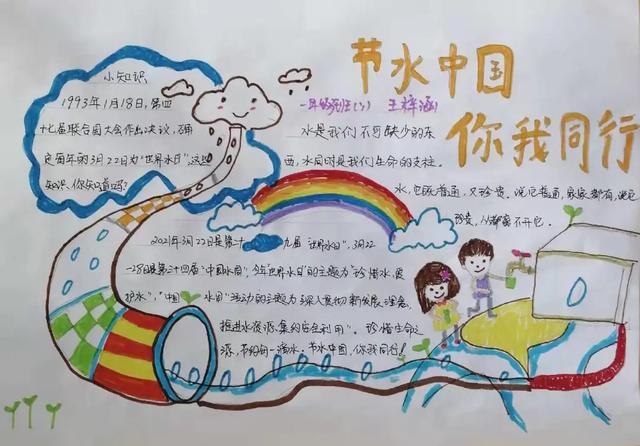 节水中国
你我同行
小知识
1993年1月18日,第四
十七届联合国大会作出决议,确
定每年的3月22日为"世界水日",这些
知识,你知道吗?
王梓涵
水是我们不可缺少的东
西,水同时是我们生命的支柱。
水,它既普通,又珍贵。说它普通,家家都有,说它
珍贵,人都离不开它。
2021年3月22日是第二十九届"世界水日",3月22
-28日是第三十四届"中国水周",今年"世界水日"的主题为"珍惜水、爱
护水","中国水周"活动的主题为"深入贯彻新发展理念,
推进水资源集约安全利用"。珍惜生命之
源,节约每一滴水。节水中国,你我同行!